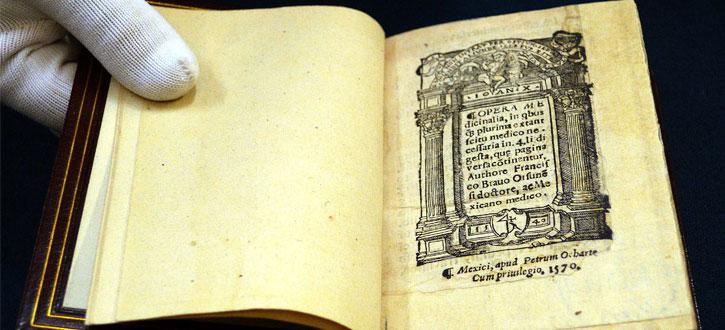 IOVAN X.
¶ OPERA ME
dicinalia, in qbus
qȝ plurima extant
scitu medico ne-
cessaria in. 4. li di
gesta, quę pagina
versa cõtinentur.
Authore Francis
co Bravo Orsunē
si doctore, ac Me
xicano medico.
15 49
¶ Mexici, apud Petrum Ocharte
Cum priuilegio. 1570.